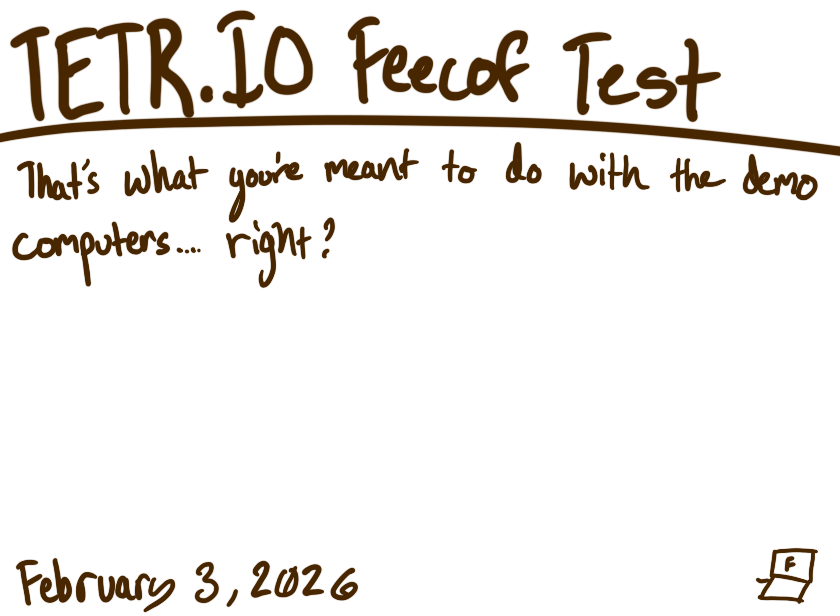 TETR.IO Feecof Test
That's what you're meant to do with the demo
computers.... right?
February 3, 2026
F